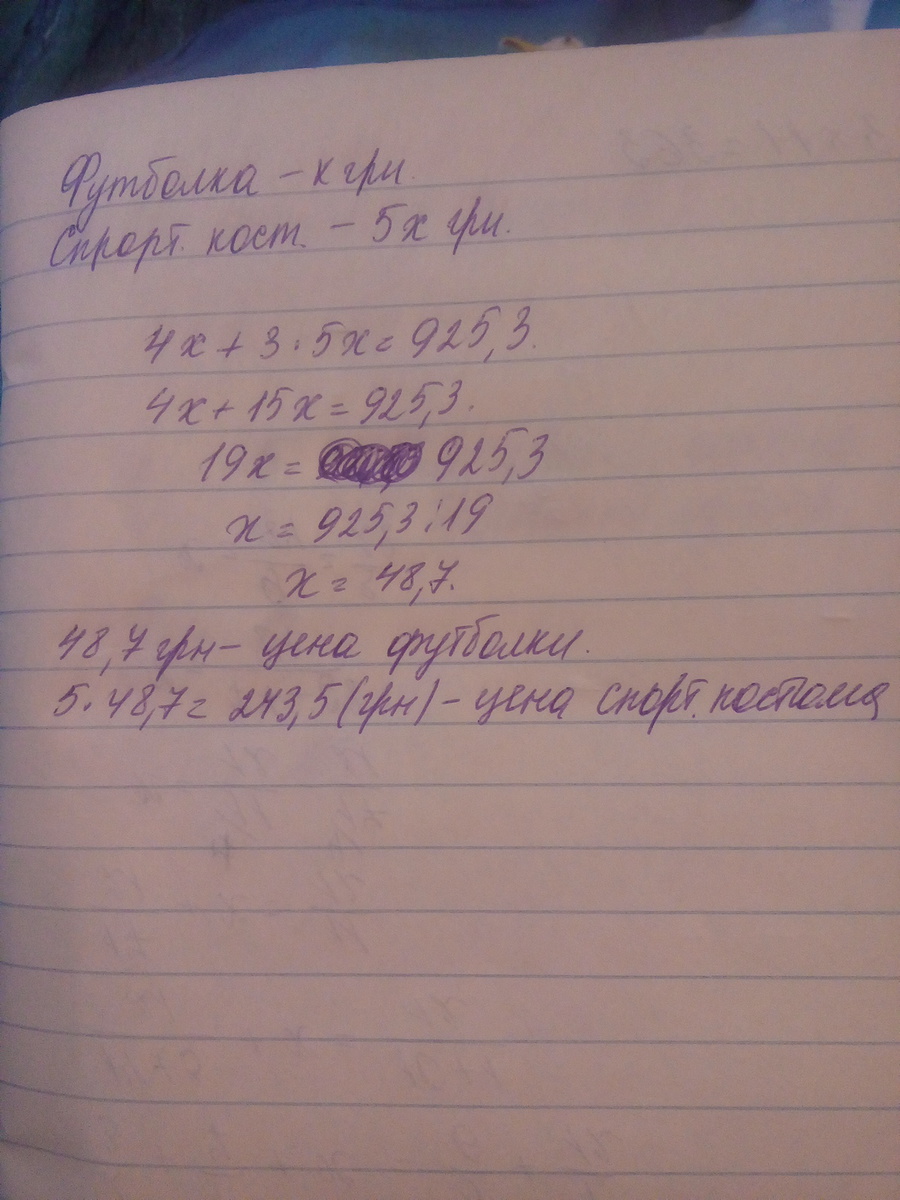 Футболка – х грн.
Спрорт. кост. – 5х грн.
4х + 3·5х = 925,3.
4х + 15х = 925,3.
19х = 925,3
х = 925,3:19
х = 48,7.
48,7 грн – цена футболки.
5·48,7 = 243,5 (грн) – цена спорт. костюма